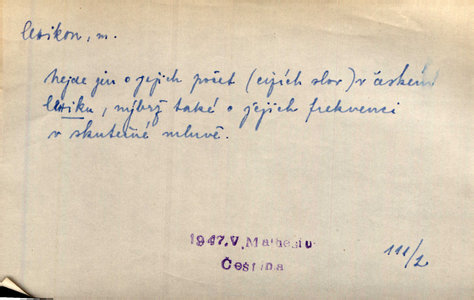 lexikon, m.
nejde jen o jejich počet (cizích slov) v českém
lexiku, nýbrž také o jejich frekvenci
v skutečné mluvě.
1947. V. Mathesius
Čeština
111/2